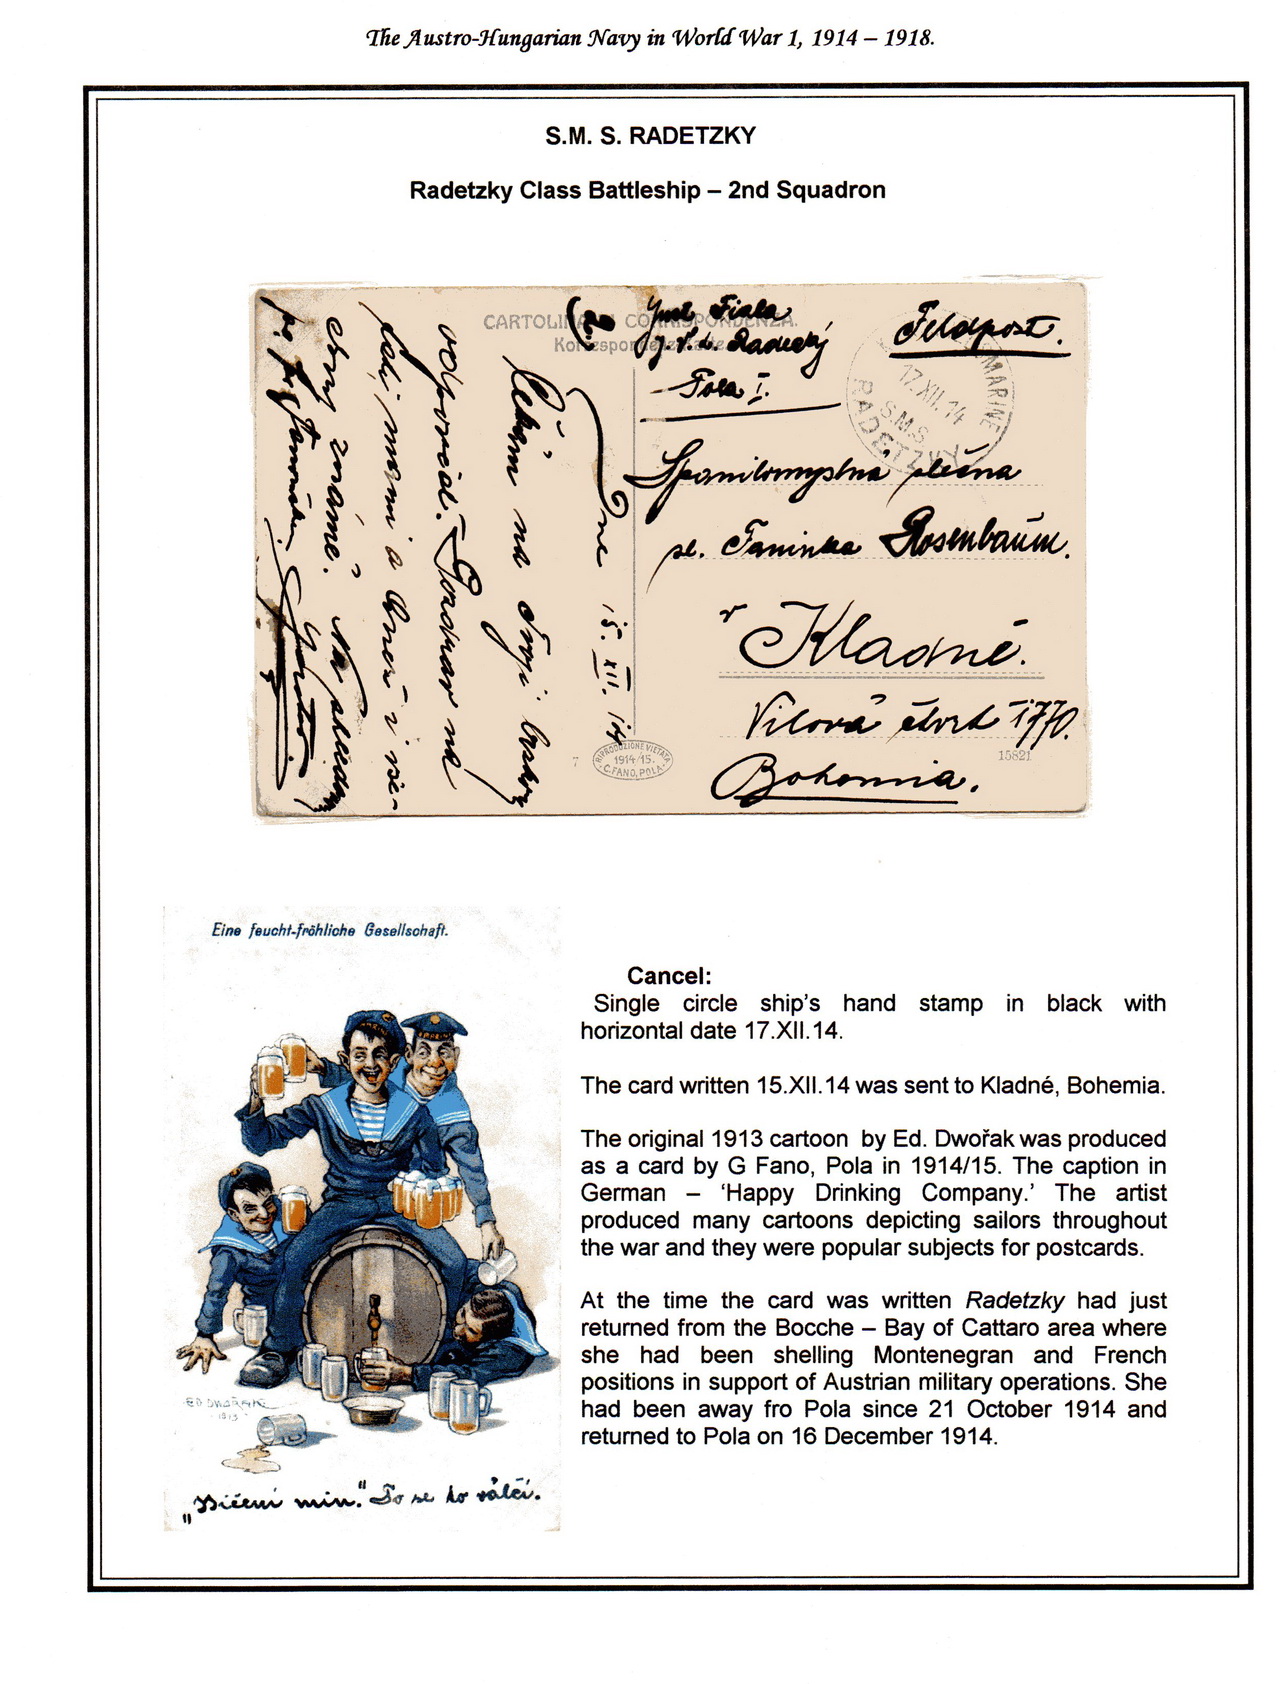 The Austro-Hungarian Navy in World War 1, 1914 – 1918.
S.M. S. RADETZKY
Radetzky Class Battleship – 2nd Squadron
CARTOLINA CORRISPONDENZA.
Fiala
Radecký
Pola I.
Feldpost.
MARINE
17.XII.14
S.M.S.
RADETZKY
Spanilomyslná slečna
sl. Faninka Rosenbaum.
v Kladně.
Vilová čtvrť 1770.
Bohemia.
15821
RIPRODUZIONE VIETATA
1914/15.
C. FANO, POLA
7
Dne 15. XII. 14
Čekám na Tvoji
odpověď. Pozdrav na
a vše-
chny známé. Na shledanou
Eine feucht-fröhliche Gesellschaft.
ED DWOŘAK
1913
min." To se to válčí.
Cancel:
Single circle ship's hand stamp in black with
horizontal date 17.XII.14.
The card written 15.XII.14 was sent to Kladné, Bohemia.
The original 1913 cartoon by Ed. Dwořak was produced
as a card by G Fano, Pola in 1914/15. The caption in
German – 'Happy Drinking Company.' The artist
produced many cartoons depicting sailors throughout
the war and they were popular subjects for postcards.
At the time the card was written Radetzky had just
returned from the Bocche – Bay of Cattaro area where
she had been shelling Montenegran and French
positions in support of Austrian military operations. She
had been away fro Pola since 21 October 1914 and
returned to Pola on 16 December 1914.